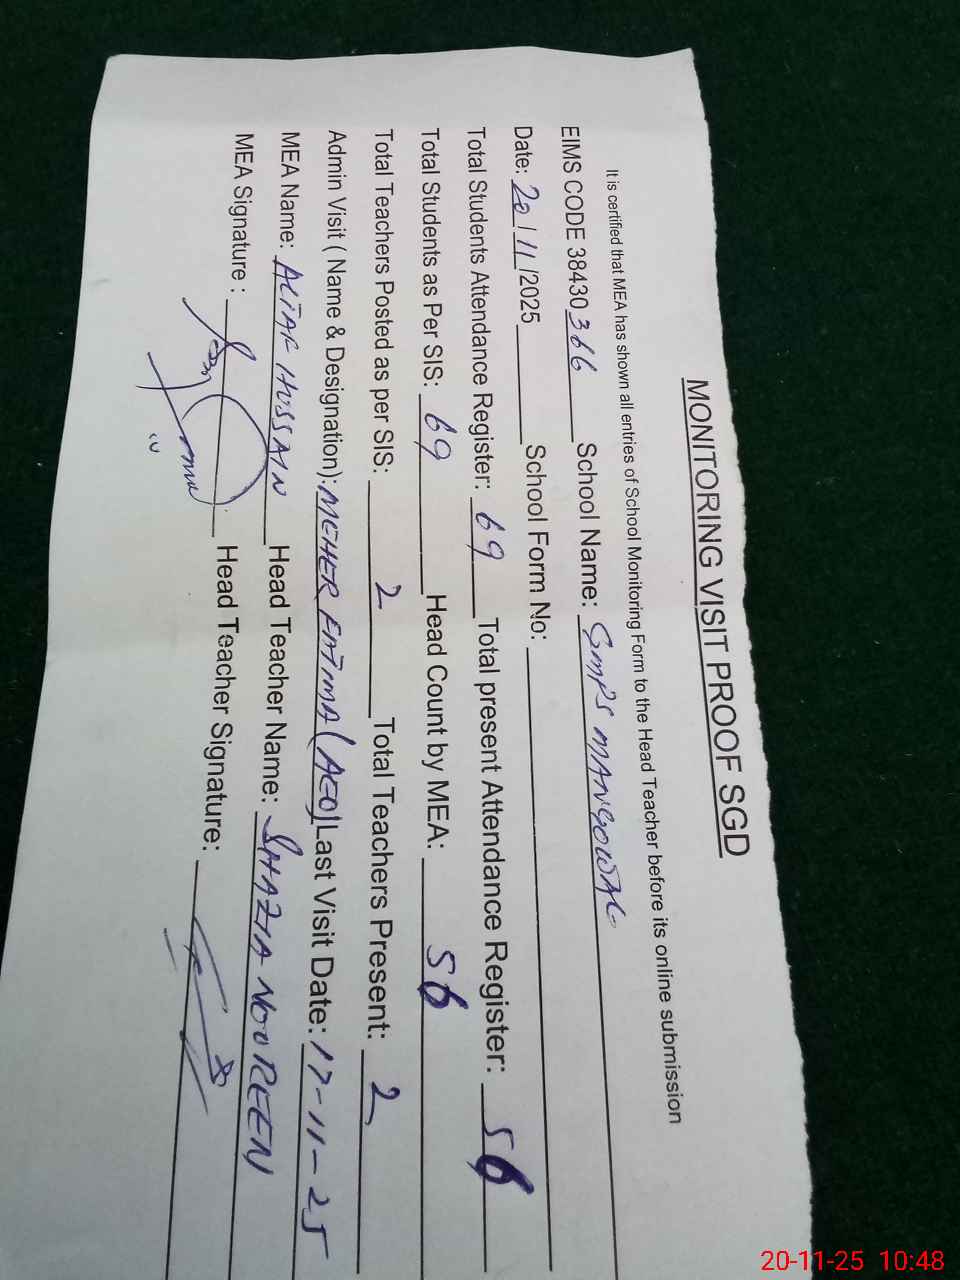 MONITORING VISIT PROOF SGD
It is certified that MEA has shown all entries of School Monitoring Form to the Head Teacher before its online submission
EIMS CODE 38430366 School Name: GMPS MANGOWAL
Date: 20/11/2025 School Form No:
Total Students Attendance Register: 69 Total present Attendance Register: 56
Total Students as Per SIS: 69 Head Count by MEA: 56
Total Teachers Posted as per SIS: 2 Total Teachers Present: 2
Admin Visit ( Name & Designation): MEHER FATIMA (AEO) Last Visit Date: 17-11-25
MEA Name: ALTAF HUSSAIN Head Teacher Name: SHAZIA NOOREEN
MEA Signature : Head Teacher Signature:
20-11-25 10:48